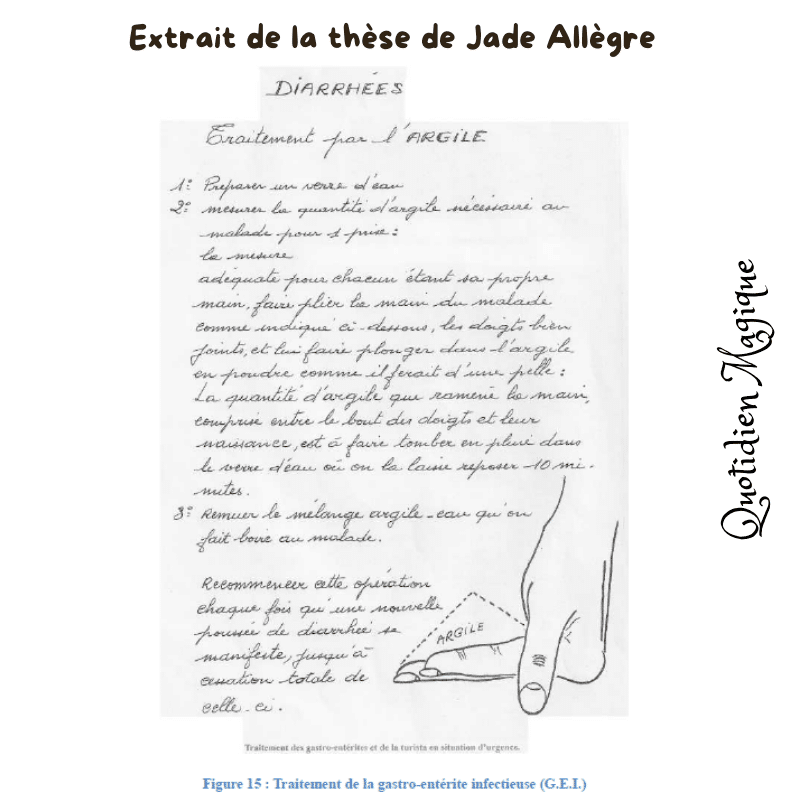 Extrait de la thèse de Jade Allègre
DIARRHÉES
Traitement par l'ARGILE
1º: Préparer un verre d'eau
2º: mesurer la quantité d'argile nécessaire au
malade pour 1 prise :
la mesure
adéquate pour chacun étant sa propre
main, faire plier la main du malade
comme indiqué ci-dessous, les doigts bien
joints, et lui faire plonger dans l'argile
en poudre comme il ferait d'une pelle :
La quantité d'argile que ramène la main,
comprise entre le bout des doigts et leur
naissance, est à faire tomber en pluie dans
le verre d'eau où on la laisse reposer 10 mi-
nutes.
3º: Remuer le mélange argile-eau qu'on
fait boire au malade.
Recommencer cette opération
chaque fois qu'une nouvelle
poussée de diarrhée se
manifeste, jusqu'à
cessation totale de
celle-ci.
ARGILE
Traitement des gastro-entérites et de la turista en situation d'urgence.
Figure 15 : Traitement de la gastro-entérite infectieuse (G.E.I.)
Quotidien Magique